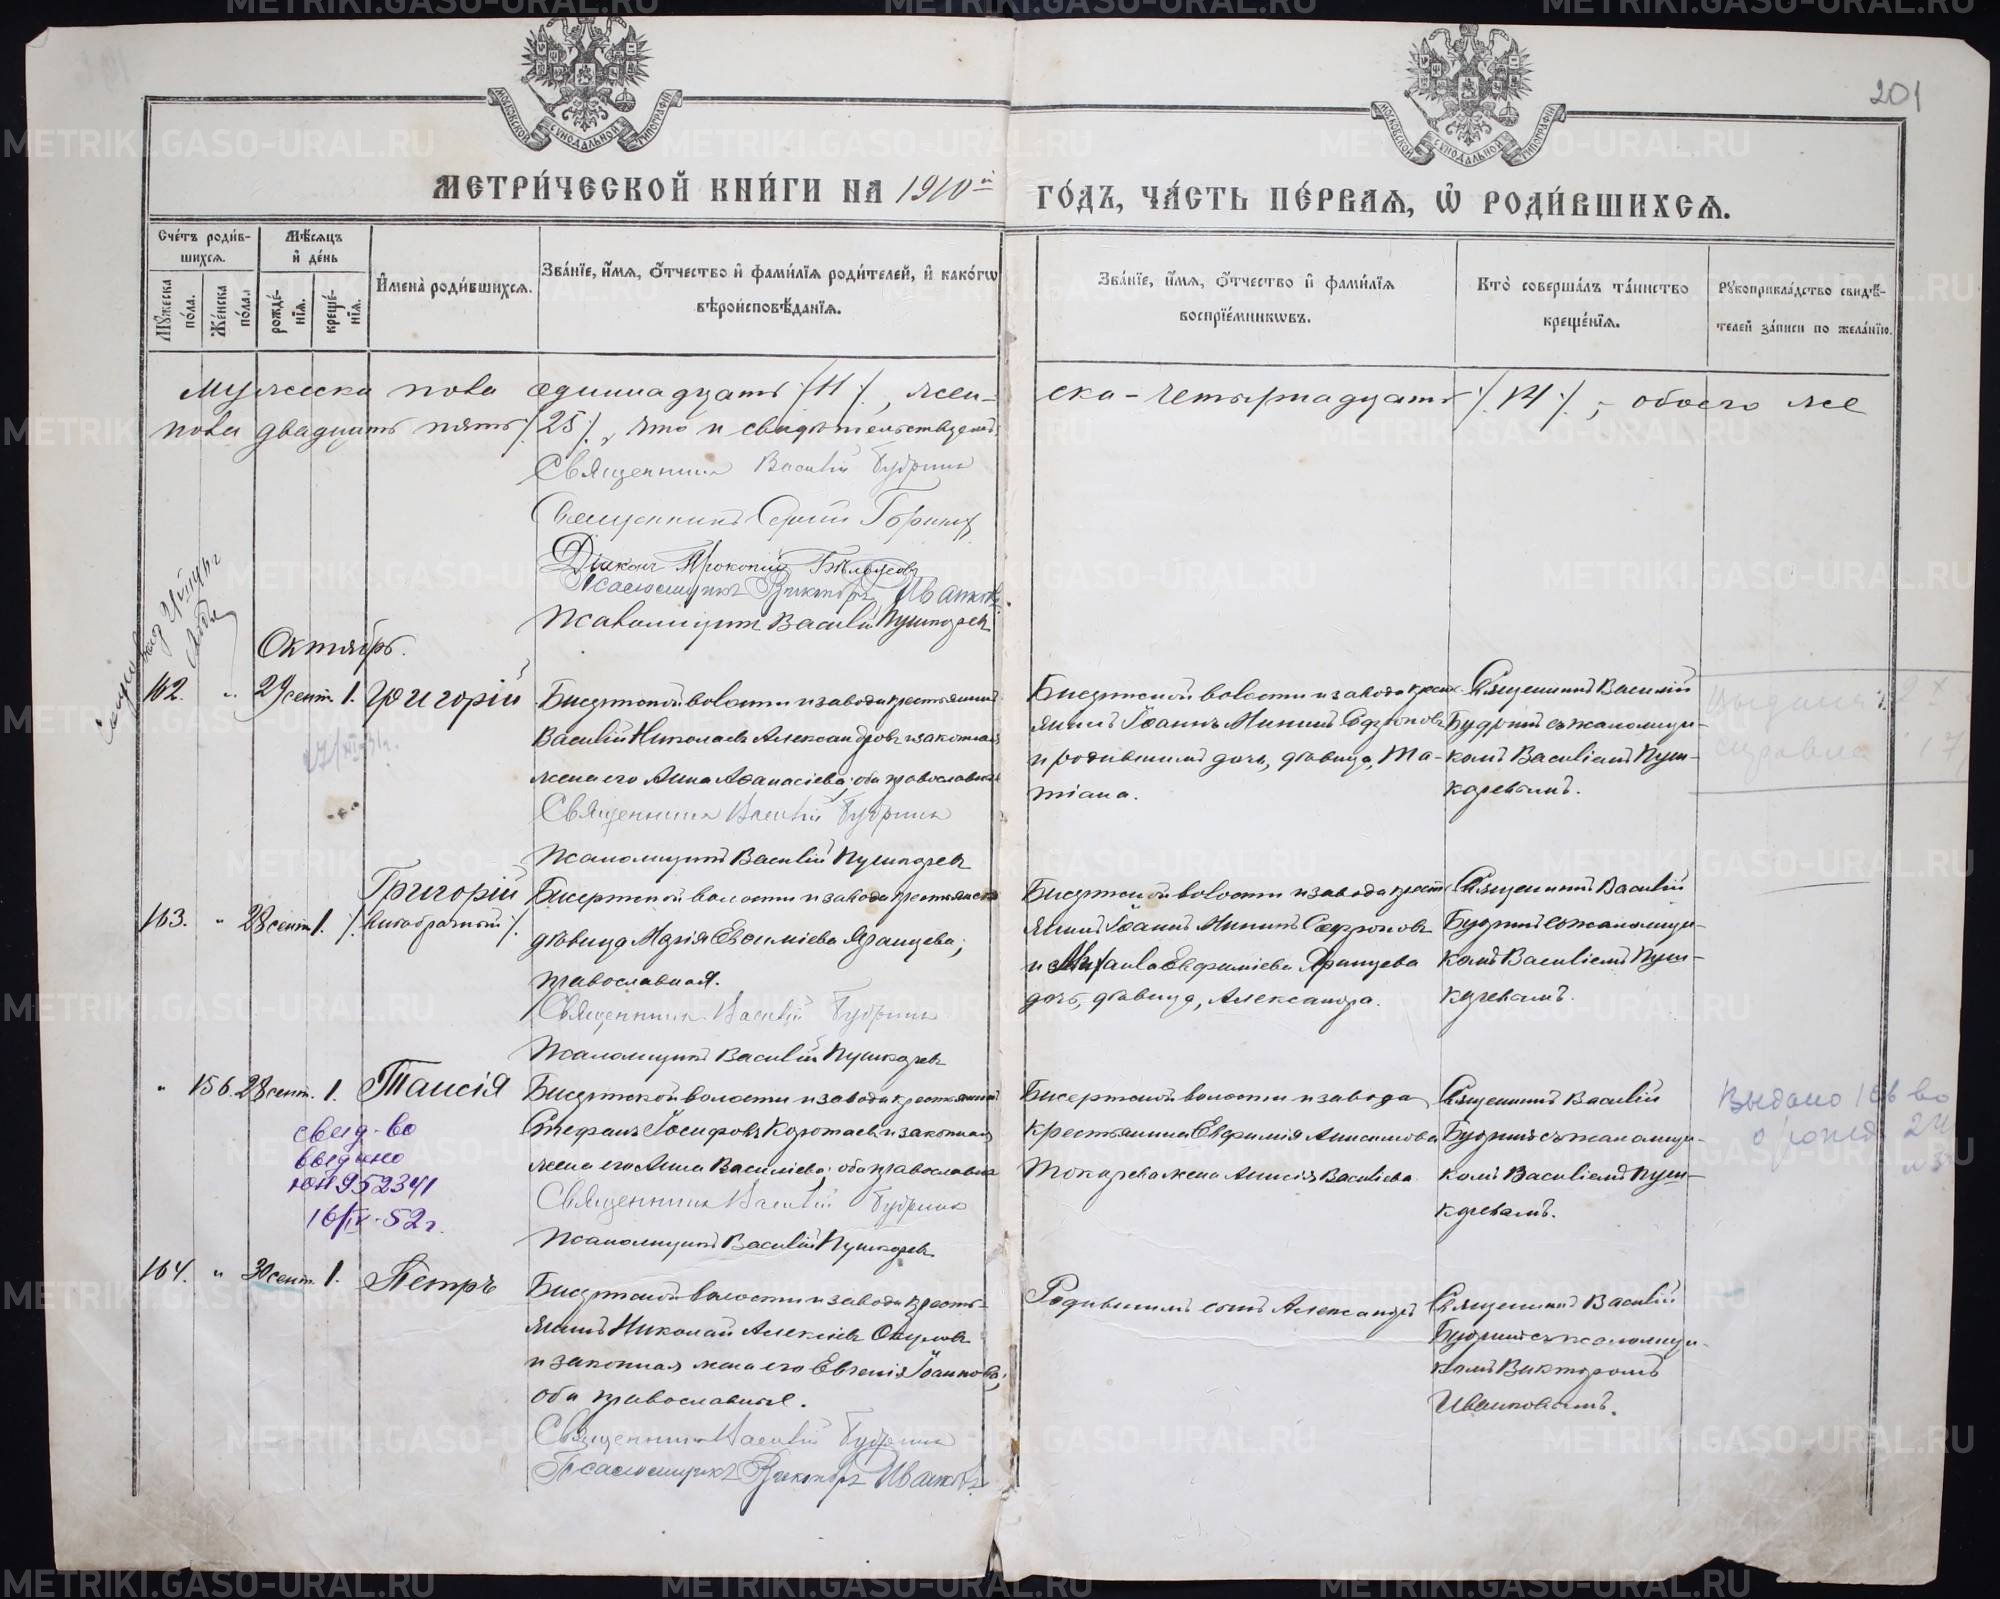 201
МОСКОВСКОЙ СѴНОДАЛЬНОЙ ТИПОГРАФІИ
МОСКОВСКОЙ СѴНОДАЛЬНОЙ ТИПОГРАФІИ
МЕТРИ́ЧЕСКОЙ КНИ́ГИ НА 1910й ГО́ДЪ, ЧА́СТЬ ПЕ́РВАѦ, Ѡ҆ РОДИ́ВШИХСѦ.
Сче́тъ роди́в-
шихсѧ.
Мꙋжеска по́ла.
Же́нска по́ла.
Мѣ́сѧцъ и҆ де́нь
рожде́-нїѧ.
креще́-нїѧ.
И҆мена̀ роди́вшихсѧ.
Зва́нїе, и҆́мѧ, ѻ҆́тчество и҆ фами́лїѧ роди́телей, и҆ како́гѡ
вѣроисповѣ́данїѧ.
Зва́нїе, и҆́мѧ, ѻ҆́тчество и҆ фами́лїѧ
воспрїе́мникѡвъ.
Кто̀ соверша́лъ та́инство
креще́нїѧ.
Рꙋкоприкла́дство свидѣ́-
телей за́писи по жела́нїю.
мужеска пола одиннадцать /11/, жен-
ска - четырнадцать /14/, - обоего же
пола двадцать пять /25/, что и свидетельствуемъ
Священникъ Василій Будринъ
Священникъ Сергій
Діаконъ Прокопій
Псаломщикъ Викторъ Иванковъ
Псаломщикъ Василій Пушкаревъ
Октябрь.
162. " 29 сент. 1. Григорій
Бисертской волости и завода крестьянинъ
Василій Николаевъ Александровъ и законная
жена его Анна Аѳанасіева; оба православные
Священникъ Василій Будринъ
Псаломщикъ Василій Пушкаревъ
Бисертской волости и завода крест-
янинъ Іоаннъ Мининъ Сафроновъ
и родившимъ дочь, дѣвица, Та-
тіана.
Священникъ Василій
Будринъ съ псаломщи-
комъ Василіемъ Пуш-
каревымъ.
163. " 28 сент. 1. Григорій
/. внѣбрачный ./
Бисертской волости и завода крестьянская
дѣвица Марія Евѳиміева Яранцева;
православная.
Священникъ Василій Будринъ
Псаломщикъ Василій Пушкаревъ
Бисертской волости и завода крест-
янинъ Іоаннъ Мининъ Сафроновъ
и Михаила Евфиміева Яранцева
дочь, дѣвица, Александра.
Священникъ Василій
Будринъ съ псаломщи-
комъ Василіемъ Пуш-
каревымъ.
" 156. 28 сент. 1. Таисія
Бисертской волости и завода крестьянинъ
Стефанъ Іосифовъ Коротаевъ и законная
жена его Анна Василіева; оба православные
Священникъ Василій Будринъ
Псаломщикъ Василій Пушкаревъ
Бисертской волости и завода
крестьянина Евфимія Анисимова
Токарева жена Анисія Василіева
Священникъ Василій
Будринъ съ псаломщи-
комъ Василіемъ Пуш-
каревымъ.
Выдано
свид-во
выдано
ЮН 952341
16/IX-52 г.
164. " 30 сент. 1. Петръ
Бисертской волости и завода кресть-
янинъ Николай Алексіевъ Окуловъ
и законная жена его Евгенія Іоаннова;
оба православные.
Священникъ Василій Будринъ
Псаломщикъ Викторъ Иванковъ
Родившимъ сынъ Александръ
Священникъ Василій
Будринъ съ псаломщи-
комъ Викторомъ
Иванковымъ.
METRIKI.GASO-URAL.RU